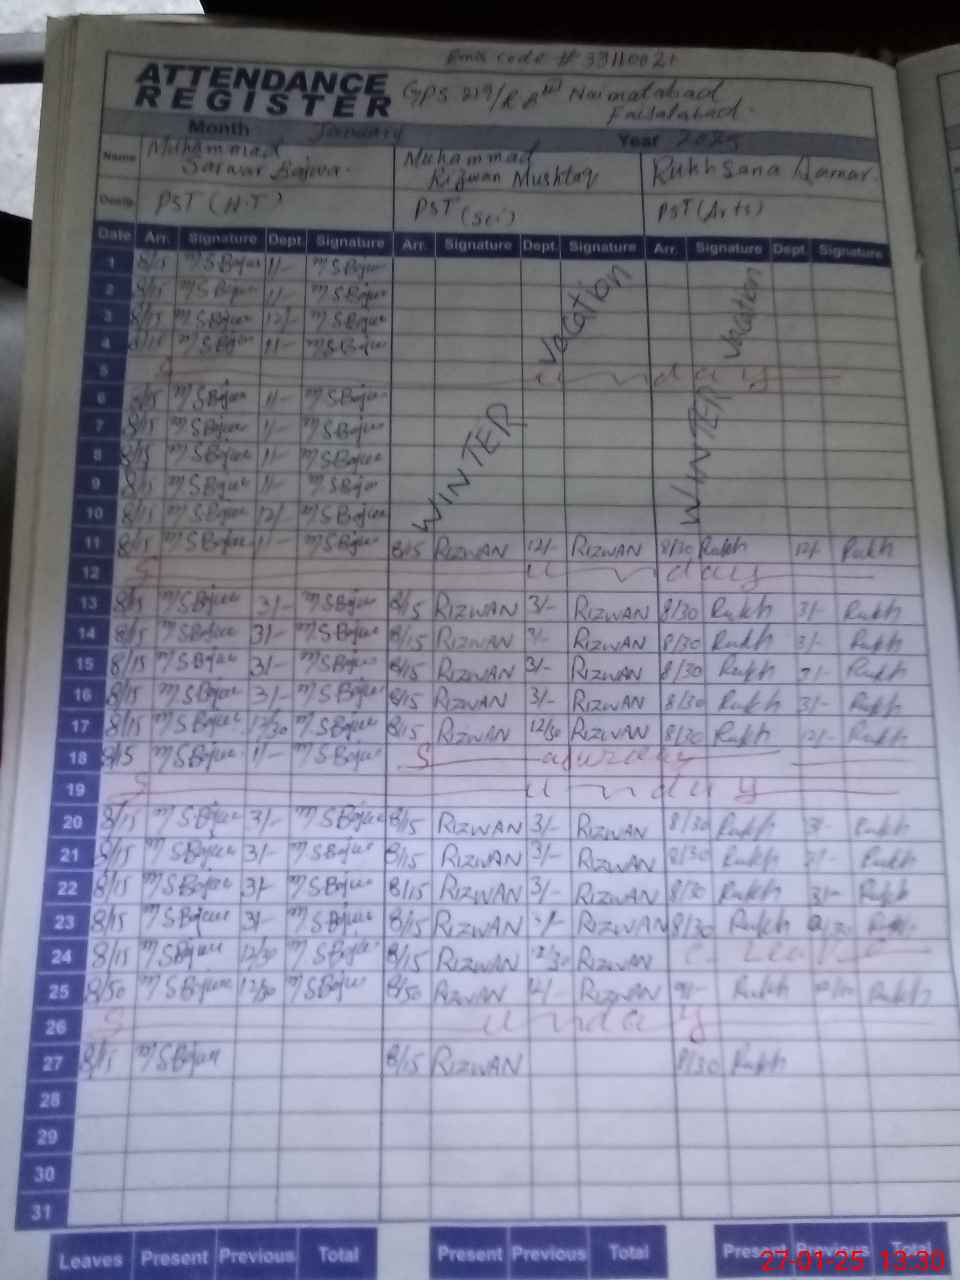 Emis code # 33110021
ATTENDANCE REGISTER
GPS 219/RB Naimatabad
Faisalabad.
Month January Year 2025
Name Muhammad Sarwar Bajwa. Muhammad Rizwan Mushtaq Rukhsana Qamar.
Desig. PST (H.T) PST (Sci) PST (Arts)
Date Arr. Signature Dept. Signature Arr. Signature Dept. Signature Arr. Signature Dept. Signature
1 8/15 M S Bajwa 1/- M S Bajwa
2 8/15 M S Bajwa 1/- M S Bajwa
3 8/15 M S Bajwa 12/- M S Bajwa
4 8/15 M S Bajwa 1/- M S Bajwa
WINTER Vacation WINTER Vacation
5 Sunday
6 8/15 M S Bajwa 1/- M S Bajwa
7 8/15 M S Bajwa 1/- M S Bajwa
8 8/15 M S Bajwa 1/- M S Bajwa
9 8/15 M S Bajwa 1/- M S Bajwa
10 8/15 M S Bajwa 12/- M S Bajwa
11 8/15 M S Bajwa 1/- M S Bajwa 8/15 RIZWAN 12/- RIZWAN 8/30 Rukh 12/- Rukh
12 Sunday
13 8/15 M S Bajwa 3/- M S Bajwa 8/15 RIZWAN 3/- RIZWAN 8/30 Rukh 3/- Rukh
14 8/15 M S Bajwa 3/- M S Bajwa 8/15 RIZWAN 3/- RIZWAN 8/30 Rukh 3/- Rukh
15 8/15 M S Bajwa 3/- M S Bajwa 8/15 RIZWAN 3/- RIZWAN 8/30 Rukh Rukh
16 8/15 M S Bajwa 3/- M S Bajwa 8/15 RIZWAN 3/- RIZWAN 8/30 Rukh 3/- Rukh
17 8/15 M S Bajwa 12/30 M S Bajwa 8/15 RIZWAN 12/30 RIZWAN 8/30 Rukh 12/- Rukh
18 8/15 M S Bajwa 1/- M S Bajwa Saturday
19 Sunday
20 8/15 M S Bajwa 3/- M S Bajwa 8/15 RIZWAN 3/- RIZWAN 8/30 Rukh 3- Rukh
21 8/15 M S Bajwa 3/- M S Bajwa 8/15 RIZWAN 3/- RIZWAN 8/30 Rukh 3/- Rukh
22 8/15 M S Bajwa 3/- M S Bajwa 8/15 RIZWAN 3/- RIZWAN 8/30 Rukh 3/- Rukh
23 8/15 M S Bajwa 3/- M S Bajwa 8/15 RIZWAN RIZWAN 8/30 Rukh Rukh
24 8/15 M S Bajwa 12/30 M S Bajwa 8/15 RIZWAN 12/30 RIZWAN C- Leave
25 8/50 M S Bajwa 12/30 M S Bajwa 8/50 RIZWAN 12/- RIZWAN 9/- Rukh Rukh
26 Sunday
27 8/15 M S Bajwa 8/15 RIZWAN 8/30 Rukh
28
29
30
31
Leaves Present Previous Total Present Previous Total Present Previous Total
27-01-25 13:30